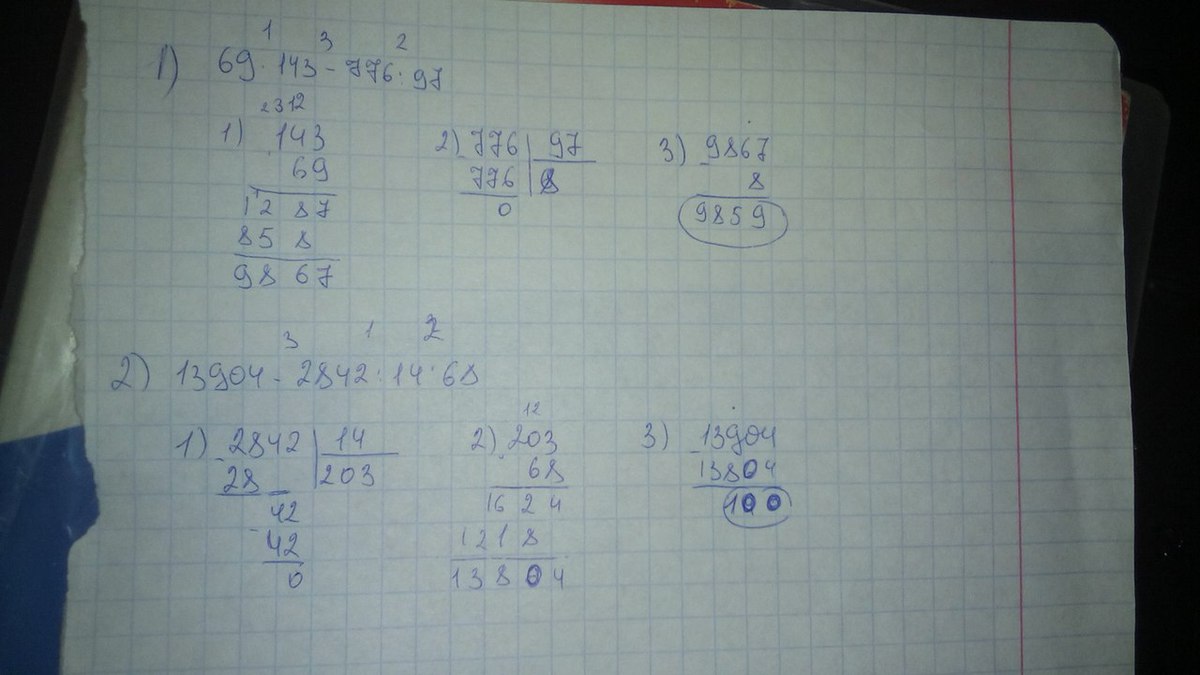 1 3 2
1) 69 · 143 - 776 : 97
2312
1) 143
69
1287
858
9867
2) 776 | 97
776 | 8
0
3) 9867
8
9859
3 1 2
2) 13904 - 2842 : 14 · 68
1) 2842 | 14
28 | 203
42
42
0
12
2) 203
68
1624
1218
13804
3) 13904
13804
100